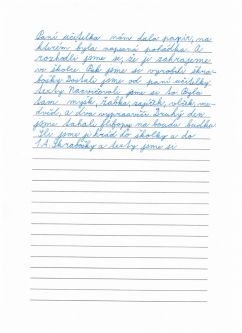 Paní učitelka nám dala papír, na
kterém byla napsaná pohádka. A
rozhodli jsme se, že ji zahrajeme
ve školce. Pak jsme si vyrobili škra-
bošky. Dostali jsme od paní učitelky
texty. Nacvičovali jsme si to. Byla
tam myška, žabka, zajíček, vlček, me-
dvěd, a dva vypravěči. Druhý den
jsme tahali flipopy na boudu budku
Šli jsme ji hrát do školky a do
1.A. Škrabošky a texty jsme si